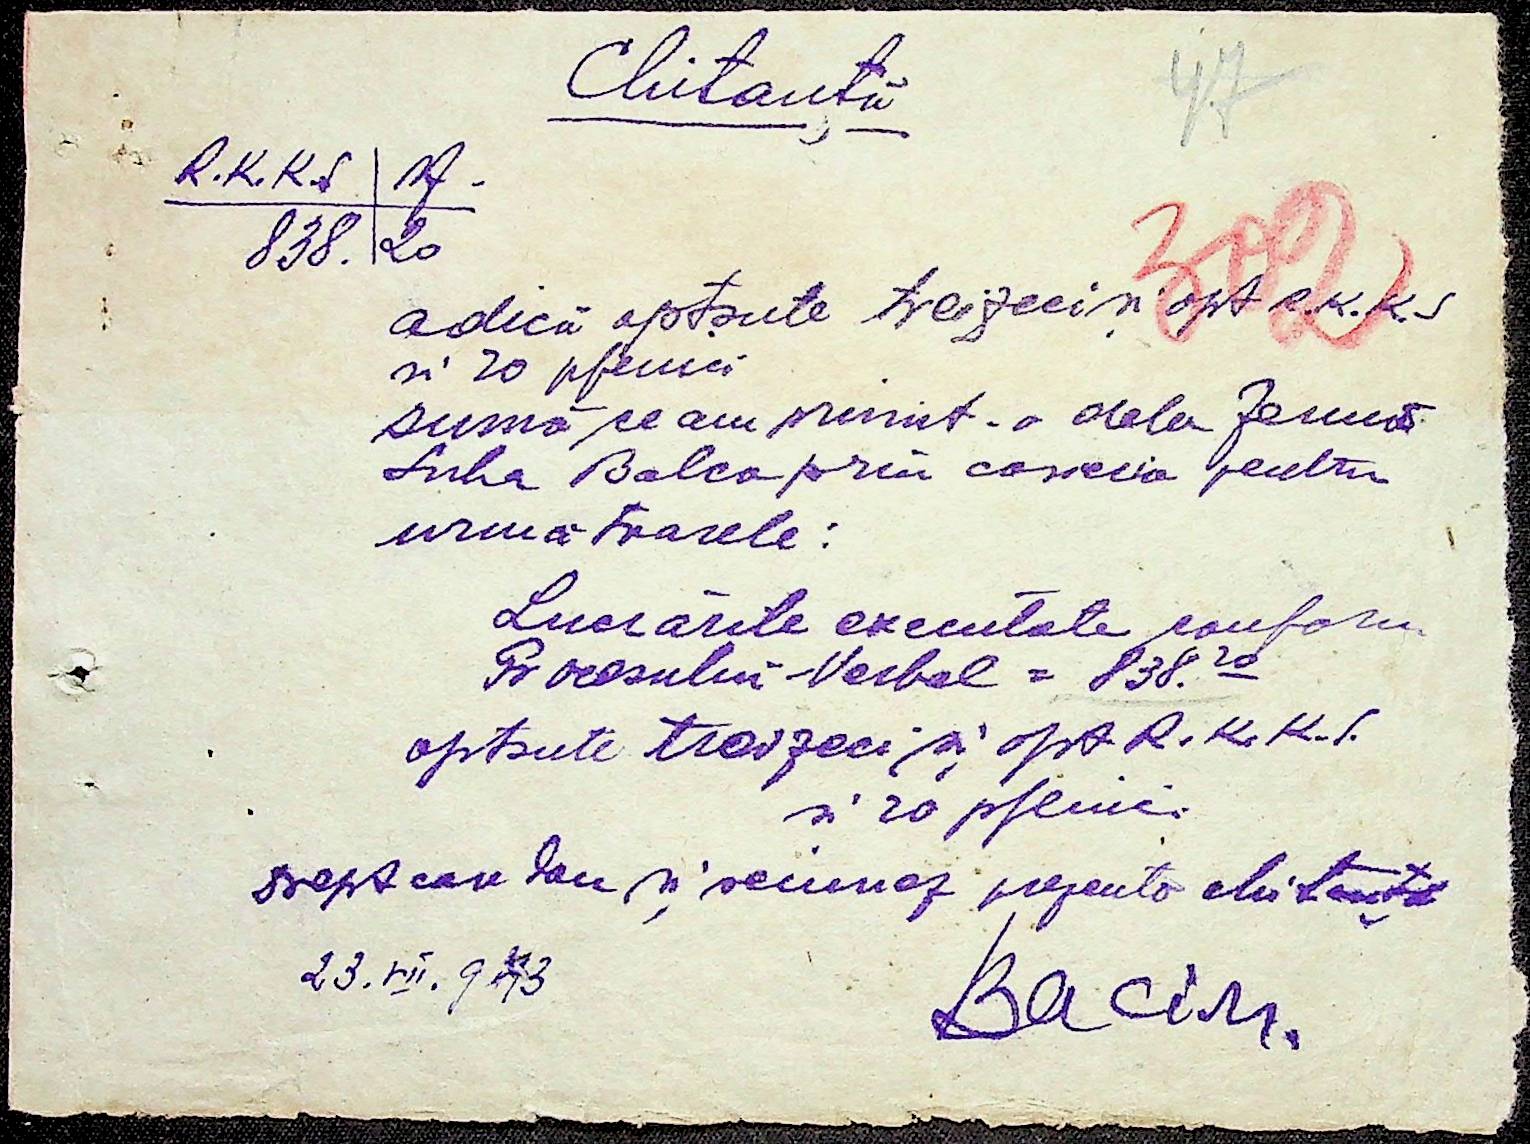 Chitanță
47
R.K.K.S | pf.
838. | 20
302
adică optsute treizeci și opt R.K.K.S
si 20 pfenici
sumă ce am primit-o dela ferma
Suha Balca prin casieria pentru
următoarele:
Lucrările executate conform
Procesului-Verbal = 838.20
optsute treizeci și opt R.K.K.S.
si 20 pfenici.
drept care dau și semnez prezenta chitanță
23.VII.943